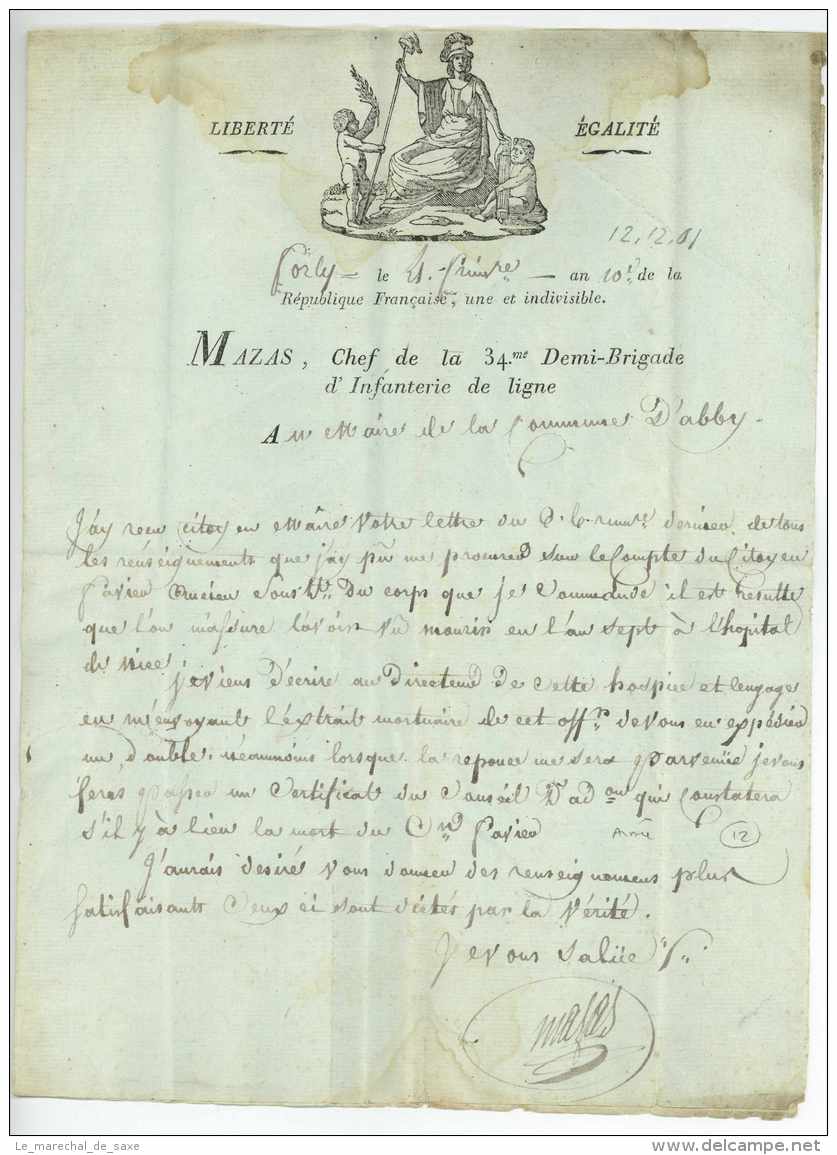 LIBERTÉ ÉGALITÉ
12.12.01
le 21. frim.re an 10.e de la
République Française, une et indivisible.
MAZAS, Chef de la 34.me Demi-Brigade
d'Infanterie de ligne
Au Maire de la Commune D'abby.
J'ay reçu citoyen Maire votre lettre du dernier. de tous
les renseignements que j'ay pu me procurer sur le Compte du Citoyen
Pavier ancien sous Lt. Du corps que je Commande il est resulté
que l'on m'assure l'avoir vu mourir en l'an sept à l'hopital
de nice.
Je viens d'écrire au Directeur de cette hospice et l'engage
en m'envoyant l'extrait mortuaire de cet off.r de vous en expédier
un double. néanmoins lorsque la reponce me sera parvenüe je vous
ferai passer un Certificat du Conseil D'ad.on qui Constatera
s'il y à lieu la mort du C.en Pavier
12
J'aurais desiré vous donner des renseignemens plus
satisfaisants Ceux ci sont dictés par la Vérité.
Je vous salüe
mazas
Le_marechal_de_saxe
www.delcampe.net